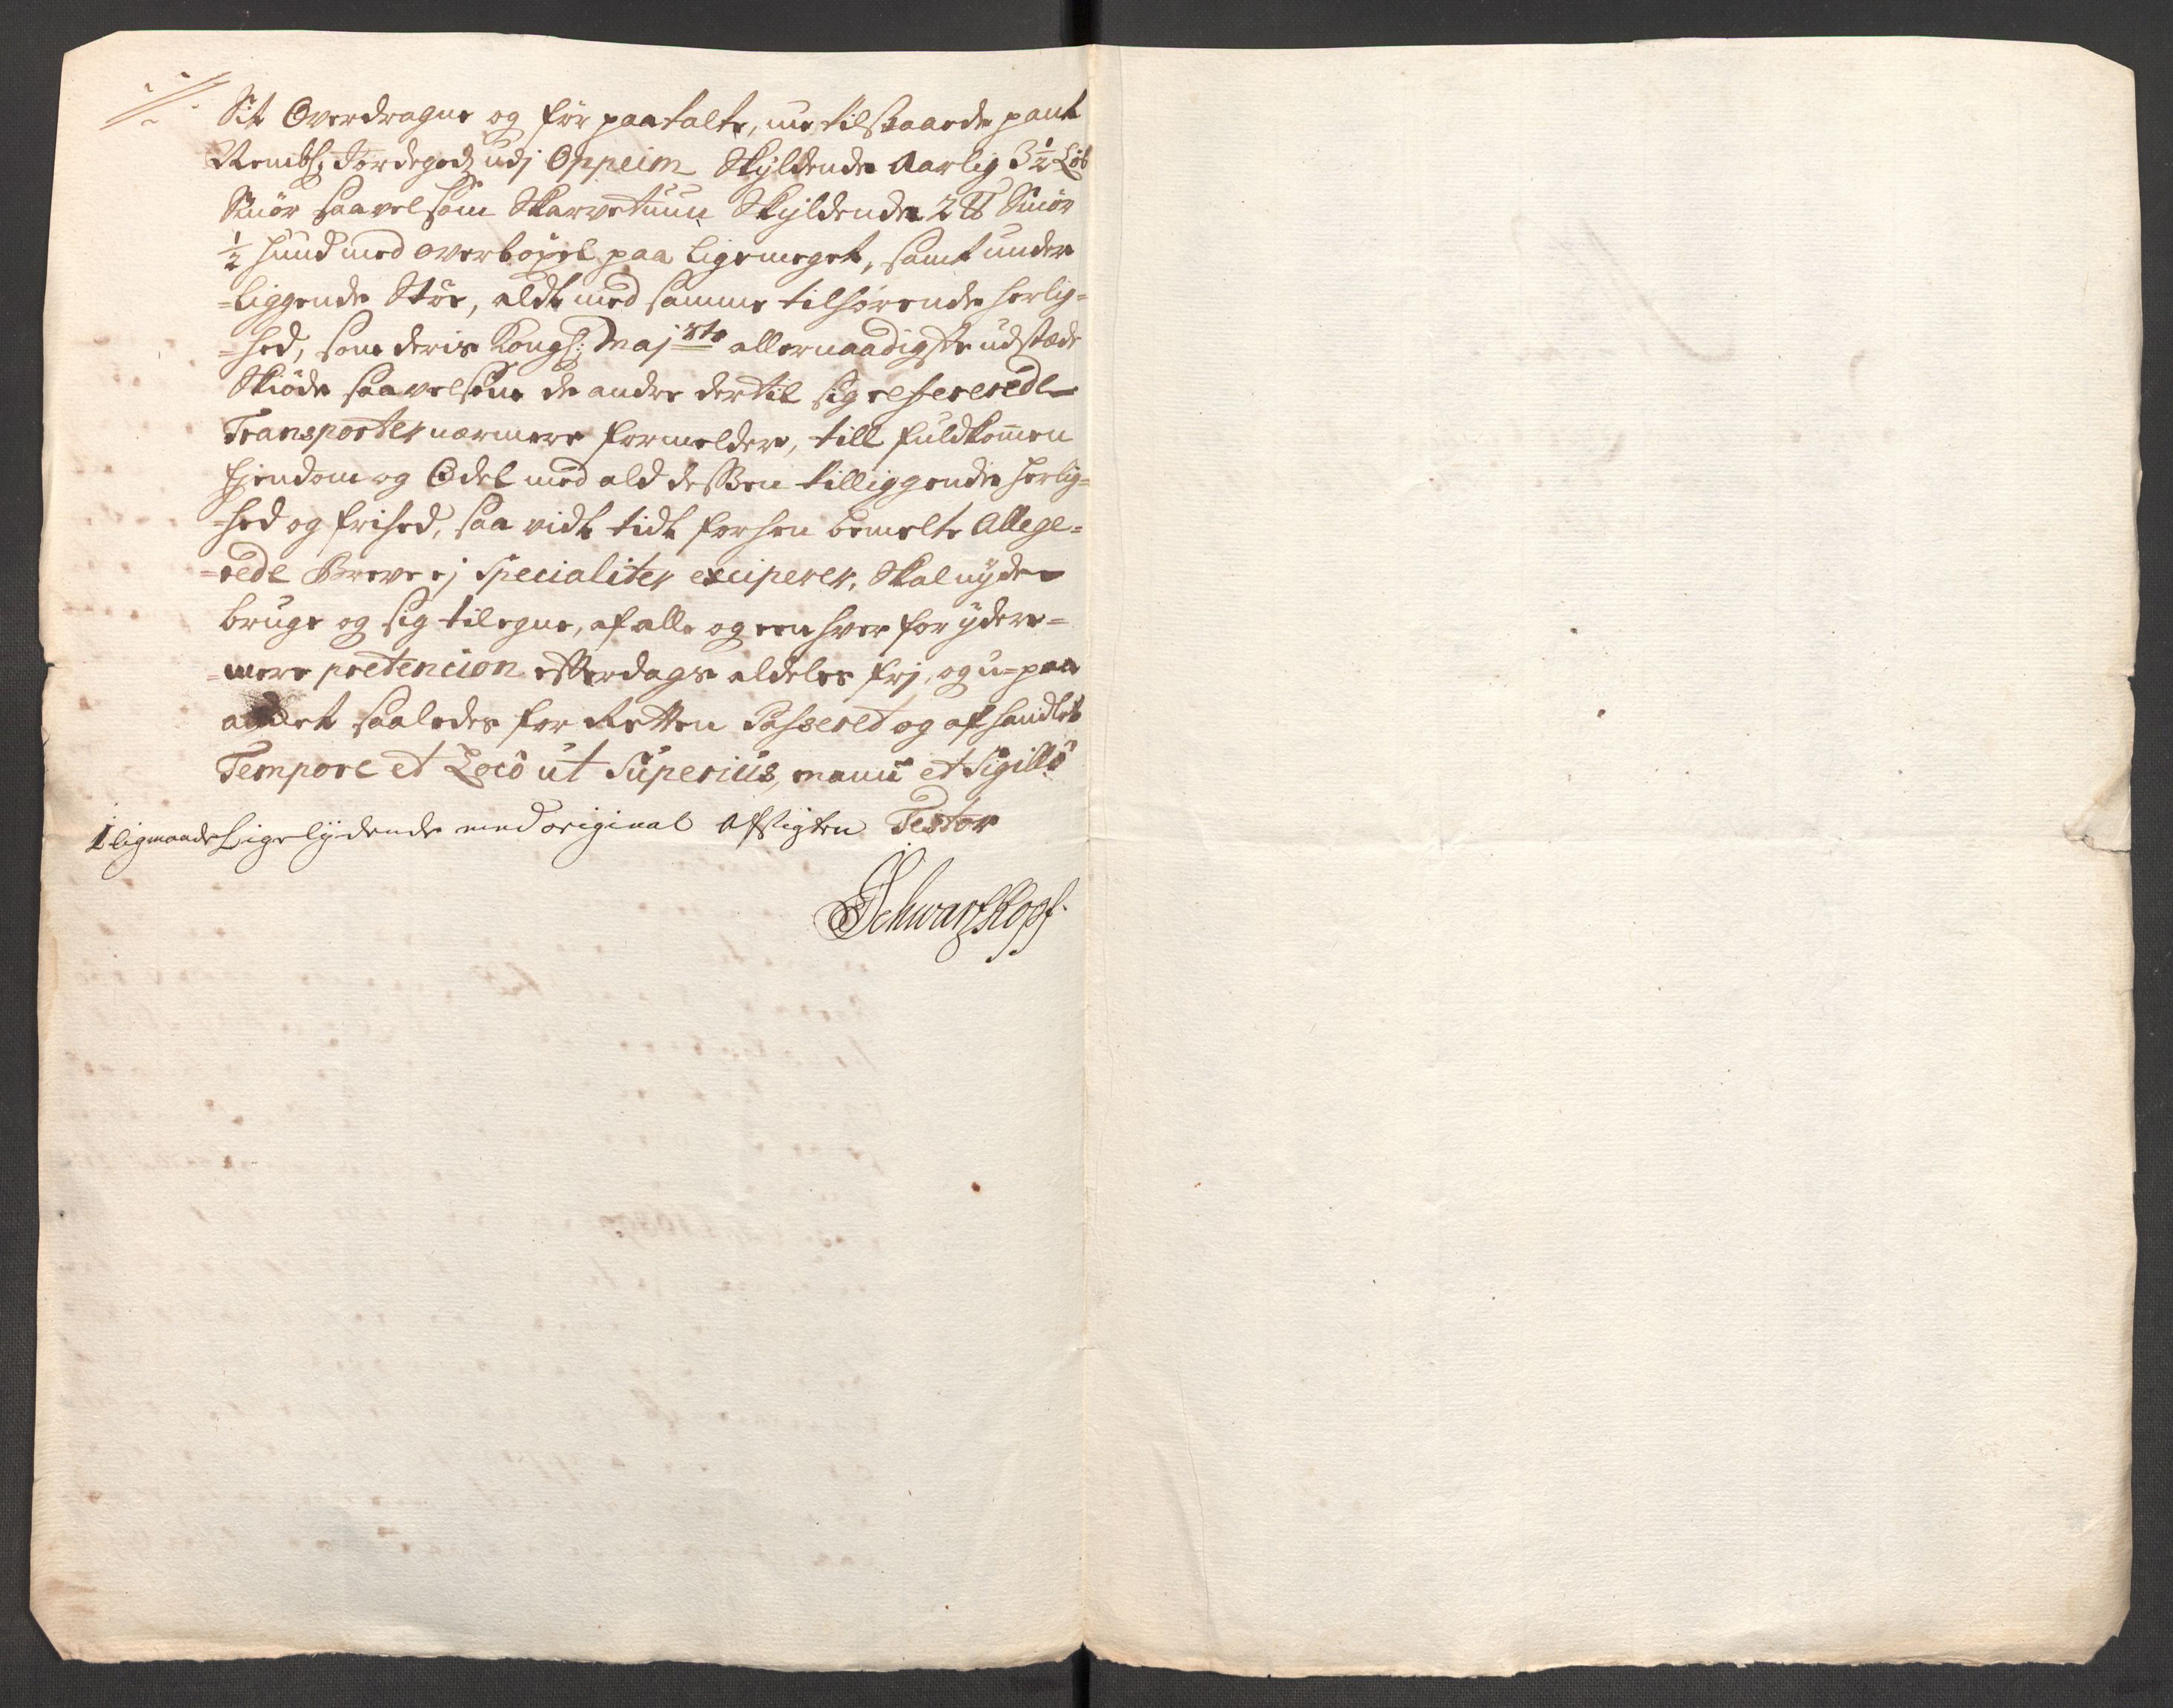 Sit Overdragne og før paatalte, nu tilstaaede pant
Jordegods udj Oppeim Skyldende Aarlig 3½ Løb
Smør saavelsom Skarvetuun Skyldende 2 ℔ Smør
½ huud med overbøxel paa ligemeget, samt under
=liggende Støe, aldt med samme tilhørende herlig=
=hed, som deris Kongl: Maj:sts allernaadigste udstæde
Skiøde saavelsom de andre dertil sig refererede
Transporter nærmere formelder, till fuldkommen
Ejendom og Odel med ald dessen tilliggende herlig=
=hed og frihed, saa vidt tidt forhen bemelte Allege=
=rede Breve ej Specialiter exciperer, Skal nyde
bruge og sig tilegne, af alle og een hver for ydere=
=mere prætencion effterdags aldeles frj, og u=paa
anket saaledes for Retten Passeret og afhandlet
Tempore et Loco ut Superius, manu et Sigillo
Iligmaade Ligelydende med original Afsigten Testor
Schwartzkopf